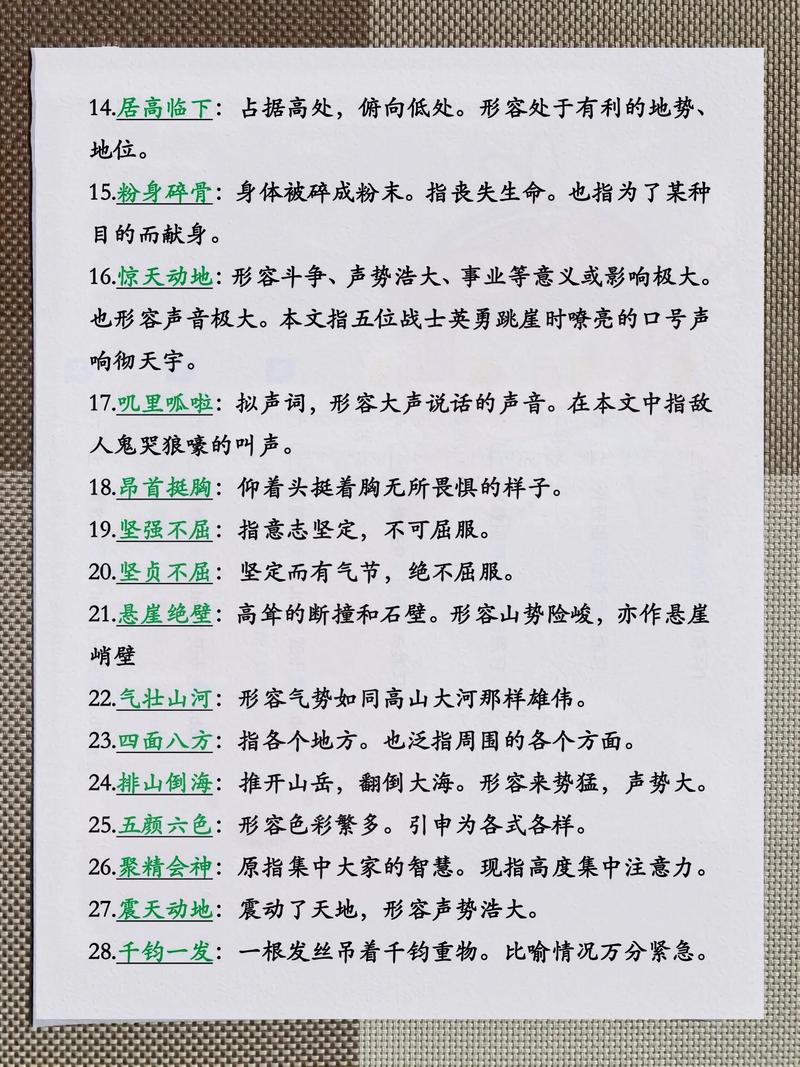 14.居高临下：占据高处，俯向低处。形容处于有利的地势、
地位。
15.粉身碎骨：身体被碎成粉末。指丧失生命。也指为了某种
目的而献身。
16.惊天动地：形容斗争、声势浩大、事业等意义或影响极大。
也形容声音极大。本文指五位战士英勇跳崖时嘹亮的口号声
响彻天宇。
17.叽里呱啦：拟声词，形容大声说话的声音。在本文中指敌
人鬼哭狼嚎的叫声。
18.昂首挺胸：仰着头挺着胸无所畏惧的样子。
19.坚强不屈：指意志坚定，不可屈服。
20.坚贞不屈：坚定而有气节，绝不屈服。
21.悬崖绝壁：高耸的断撞和石壁。形容山势险峻，亦作悬崖
峭壁
22.气壮山河：形容气势如同高山大河那样雄伟。
23.四面八方：指各个地方。也泛指周围的各个方面。
24.排山倒海：推开山岳，翻倒大海。形容来势猛，声势大。
25.五颜六色：形容色彩繁多。引申为各式各样。
26.聚精会神：原指集中大家的智慧。现指高度集中注意力。
27.震天动地：震动了天地，形容声势浩大。
28.千钧一发：一根发丝吊着千钧重物。比喻情况万分紧急。